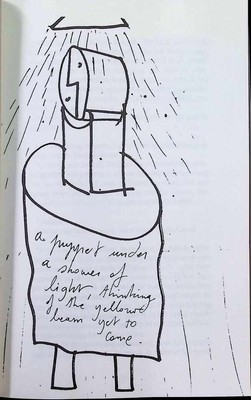 a puppet under
a shower of
light, thinking
of the yellow
beam yet to
come.